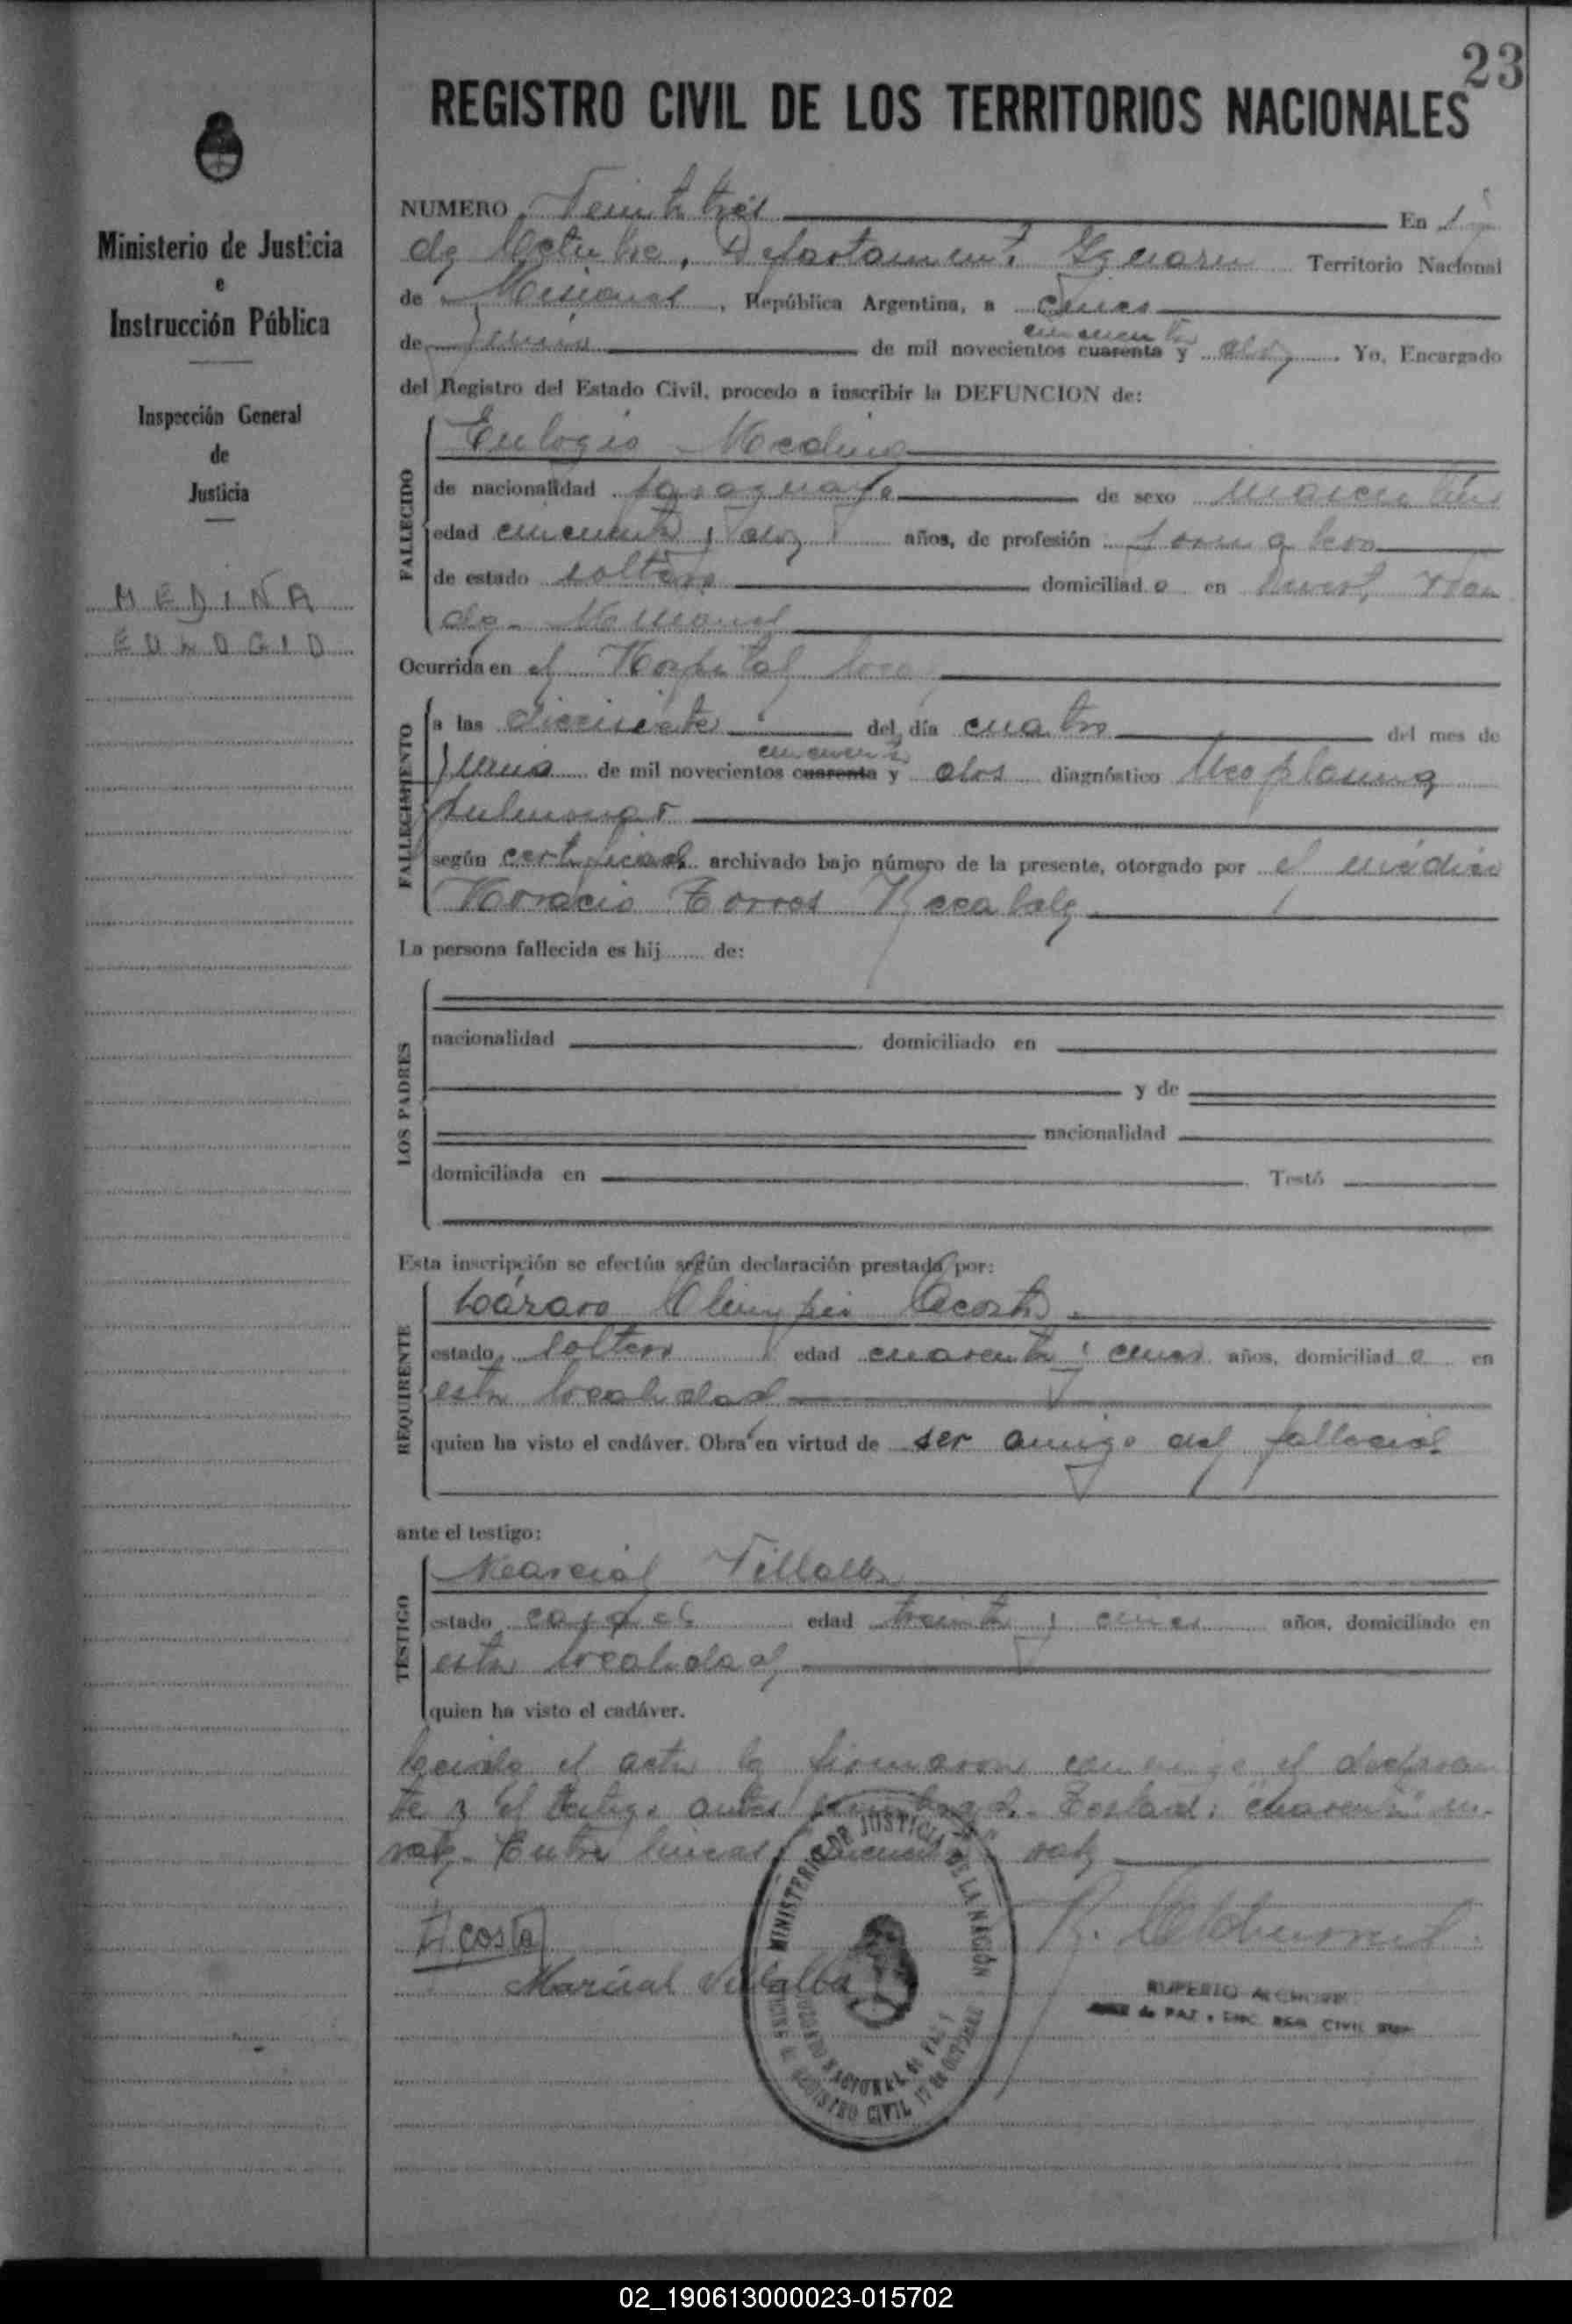 23
REGISTRO CIVIL DE LOS TERRITORIOS NACIONALES
Ministerio de Justicia
e
Instrucción Pública
Inspección General
de
Justicia
MEDINA
EULOGIO
NUMERO Veintitrés En 17
de Octubre, Departamento Iguazu Territorio Nacional
de Misiones, República Argentina, a cinco
de Junio de mil novecientos cuarenta cincuenta y dos. Yo, Encargado
del Registro del Estado Civil, procedo a inscribir la DEFUNCION de:
FALLECIDO
Eulogio Medina
de nacionalidad paraguaya de sexo masculino
edad cincuenta y dos años, de profesión jornalero
de estado soltero domiciliado en
de Misiones
Ocurrida en el Hospital local
FALLECIMIENTO
a las diecisiete del día cuatro del mes de
Junio de mil novecientos cuarenta cincuenta y dos diagnóstico Neoplasma
pulmonar
según certificado archivado bajo número de la presente, otorgado por el médico
Horacio Torres
La persona fallecida es hij...... de:
LOS PADRES
nacionalidad domiciliado en
y de
nacionalidad
domiciliada en Testó
Esta inscripción se efectúa según declaración prestada por:
REQUIRENTE
Lázaro Olimpio Acosta
estado soltero edad cuarenta y cinco años, domiciliado en
esta localidad
quien ha visto el cadáver. Obra en virtud de ser amigo del fallecido
ante el testigo:
TESTIGO
Marcial Villalba
estado casado edad treinta y cinco años, domiciliado en
esta localidad
quien ha visto el cadáver.
Leída el acta la firmaron conmigo el declaran
te y el testigo antes nombrado. Testado: "cuarenta" no
vale. Entre lineas "cincuenta" vale
Acosta
Marcial Villalba
MINISTERIO DE JUSTICIA DE LA NACIÓN
JUZGADO NACIONAL DE PAZ Y
REGISTRO CIVIL 17 DE OCTUBRE
JUEZ de PAZ y ENC. REG. CIVIL
02_190613000023-015702